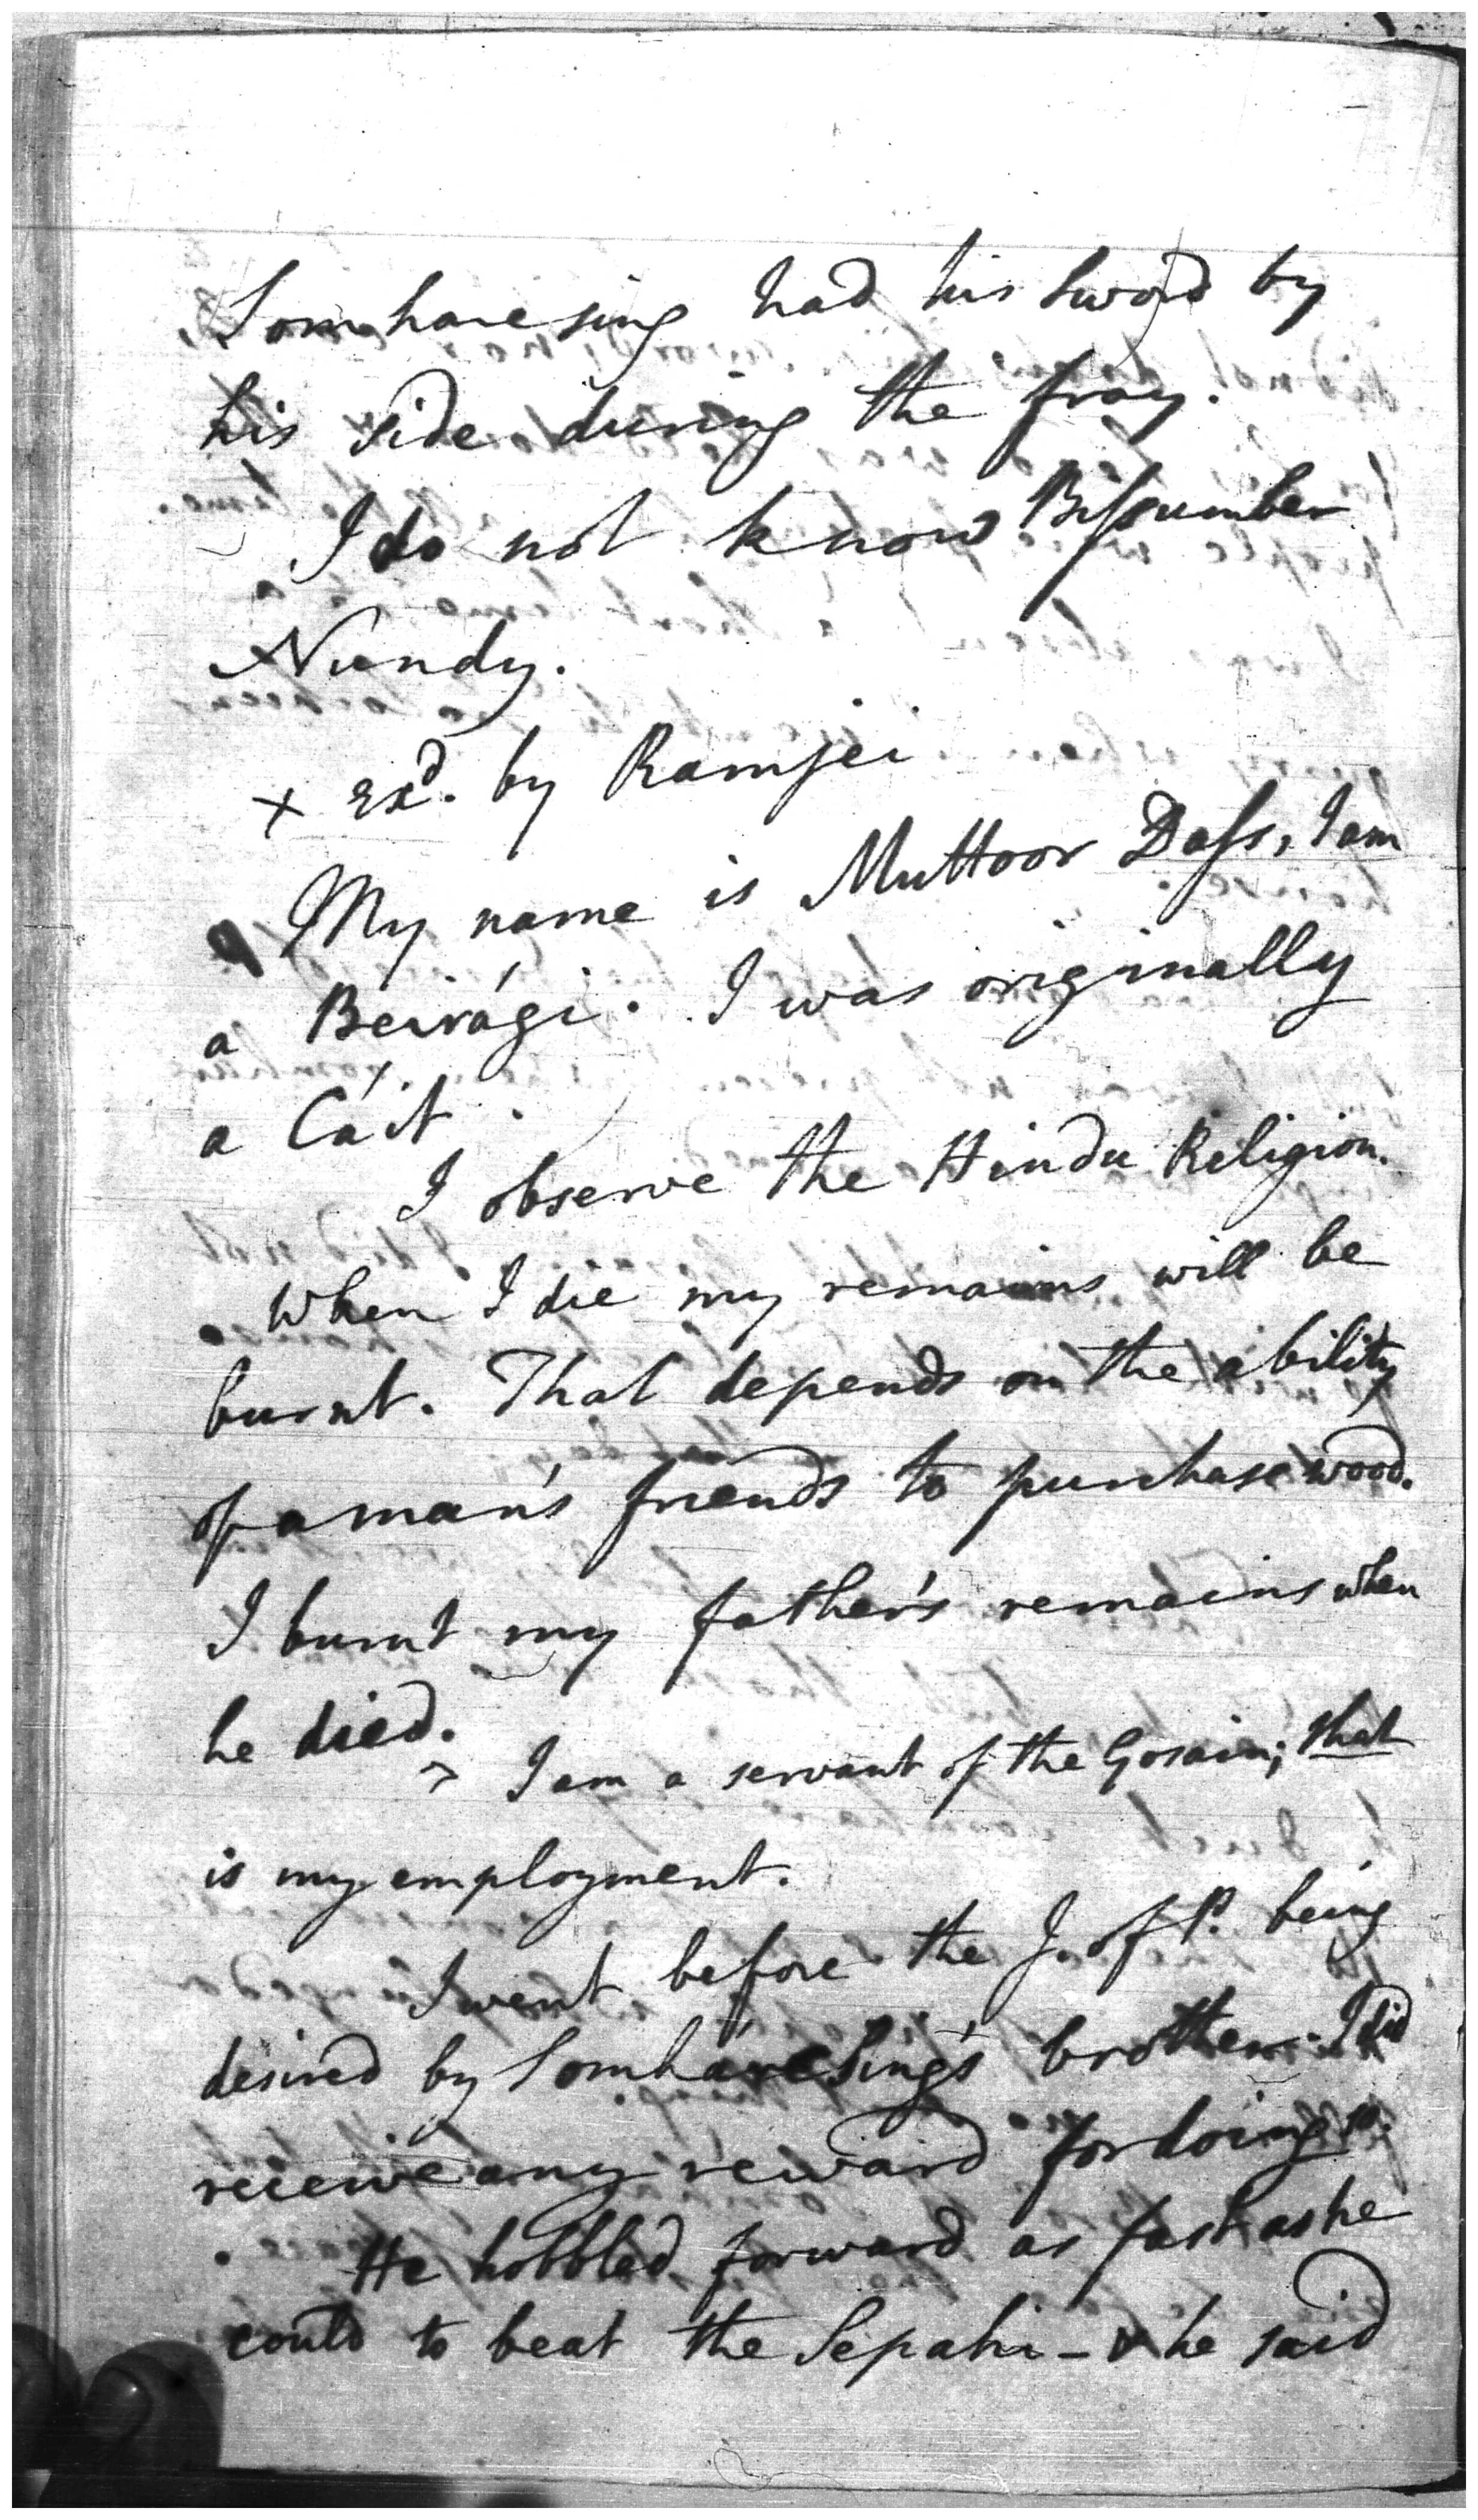 Somharesing had his Sword by
his side during the fray.
I do not know Bissumber
Nundy.
+ Exd. by Ramjei
My name is Muttoor Dass, I am
a Beirági. I was originally
a Cáit.
I observe the Hindu Religion.
When I die my remains will be
burnt. That depends on the ability
of a man's friends to purchase wood.
I burnt my father's remains when
he died.
I am a servant of the Gosain; that
is my employment.
I went before the J. of P. being
desired by Somháresing's brother. I did
receive any reward for doing so.
He hobbled forward as fast as he
could to beat the Sepahi - & he said